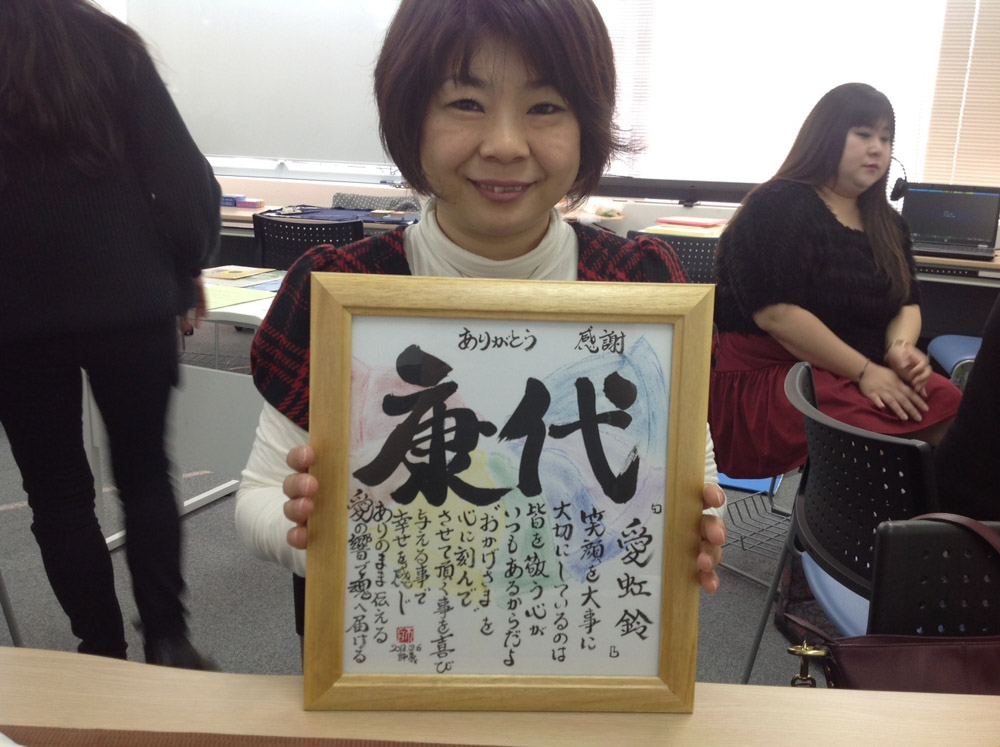 ありがとう 感謝
康代
『愛虹鈴』
笑顔を大事に
大切にしているのは
皆を敬う心が
いつもあるからだよ
"おかげさま"を
心に刻んで
させて頂く事を喜び
与える事で
幸せを感じ
ありのまま伝える
愛の響で魂へ届ける